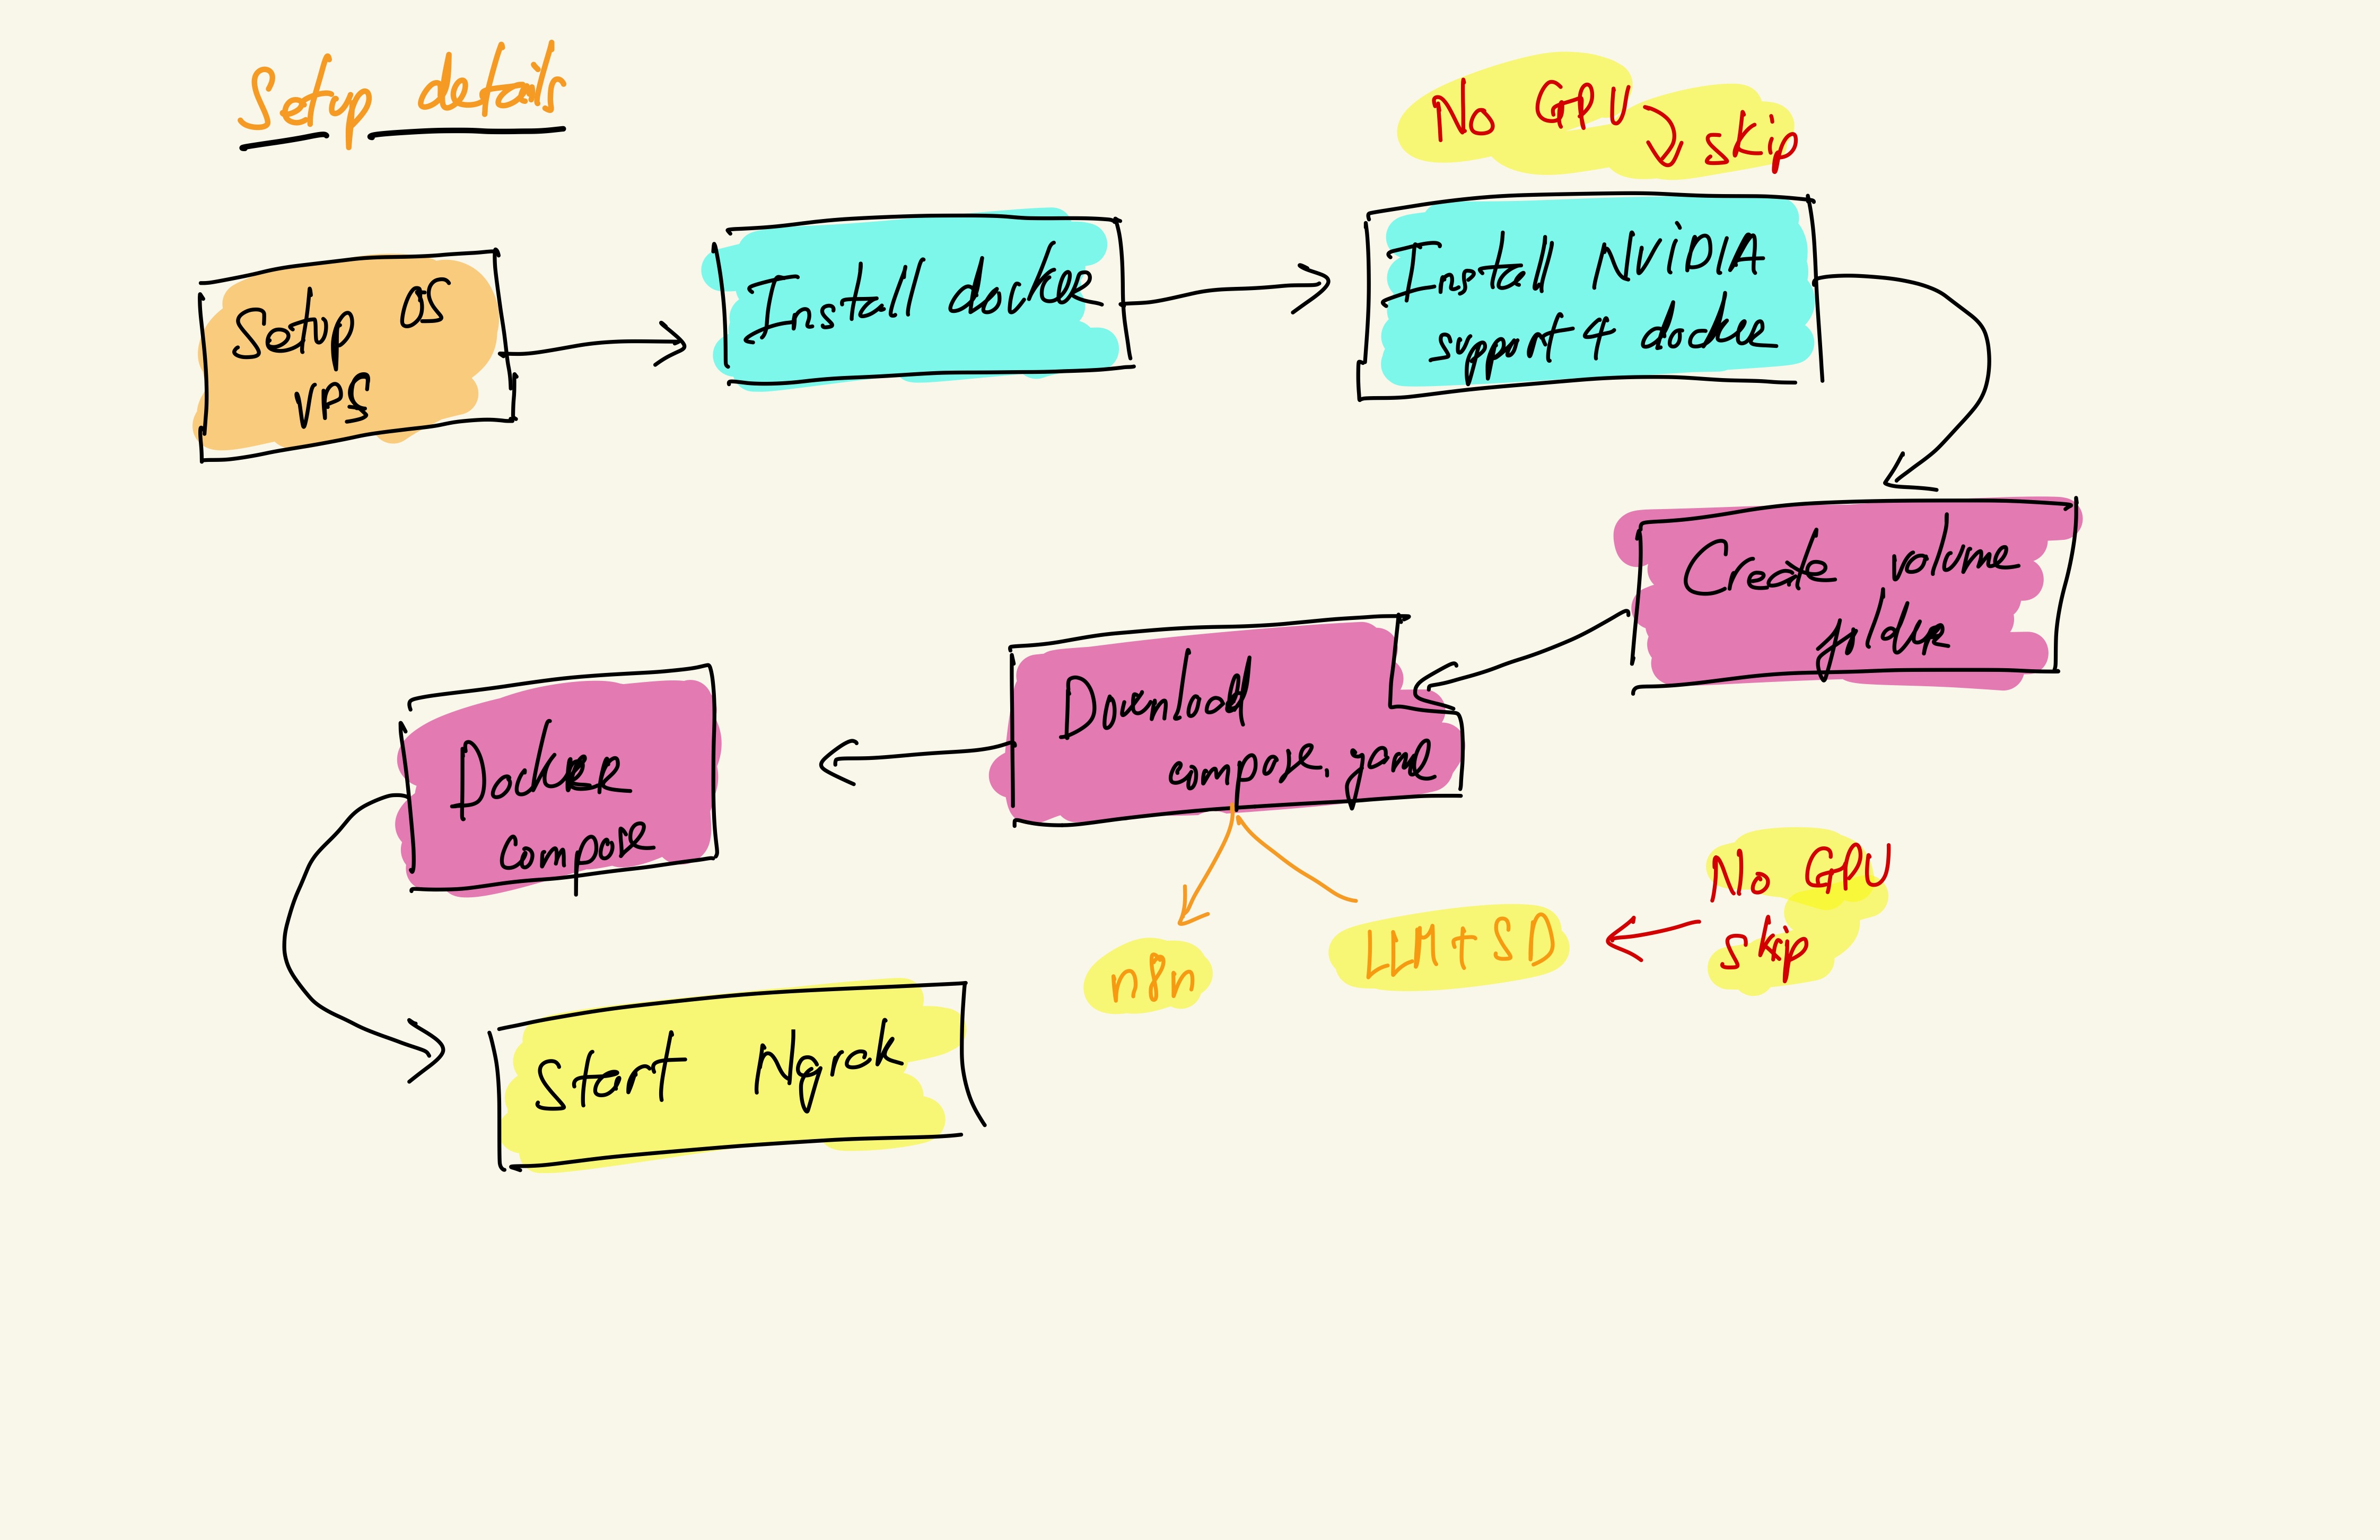 Setup details
No GPU
skip
Setup OS
VPS
Install docker
Install NVIDIA
support 4 docker
Create volume
folder
Download
compose.yaml
Docker
compose
n8n
LLM + SD
No GPU
skip
Start Ngrok